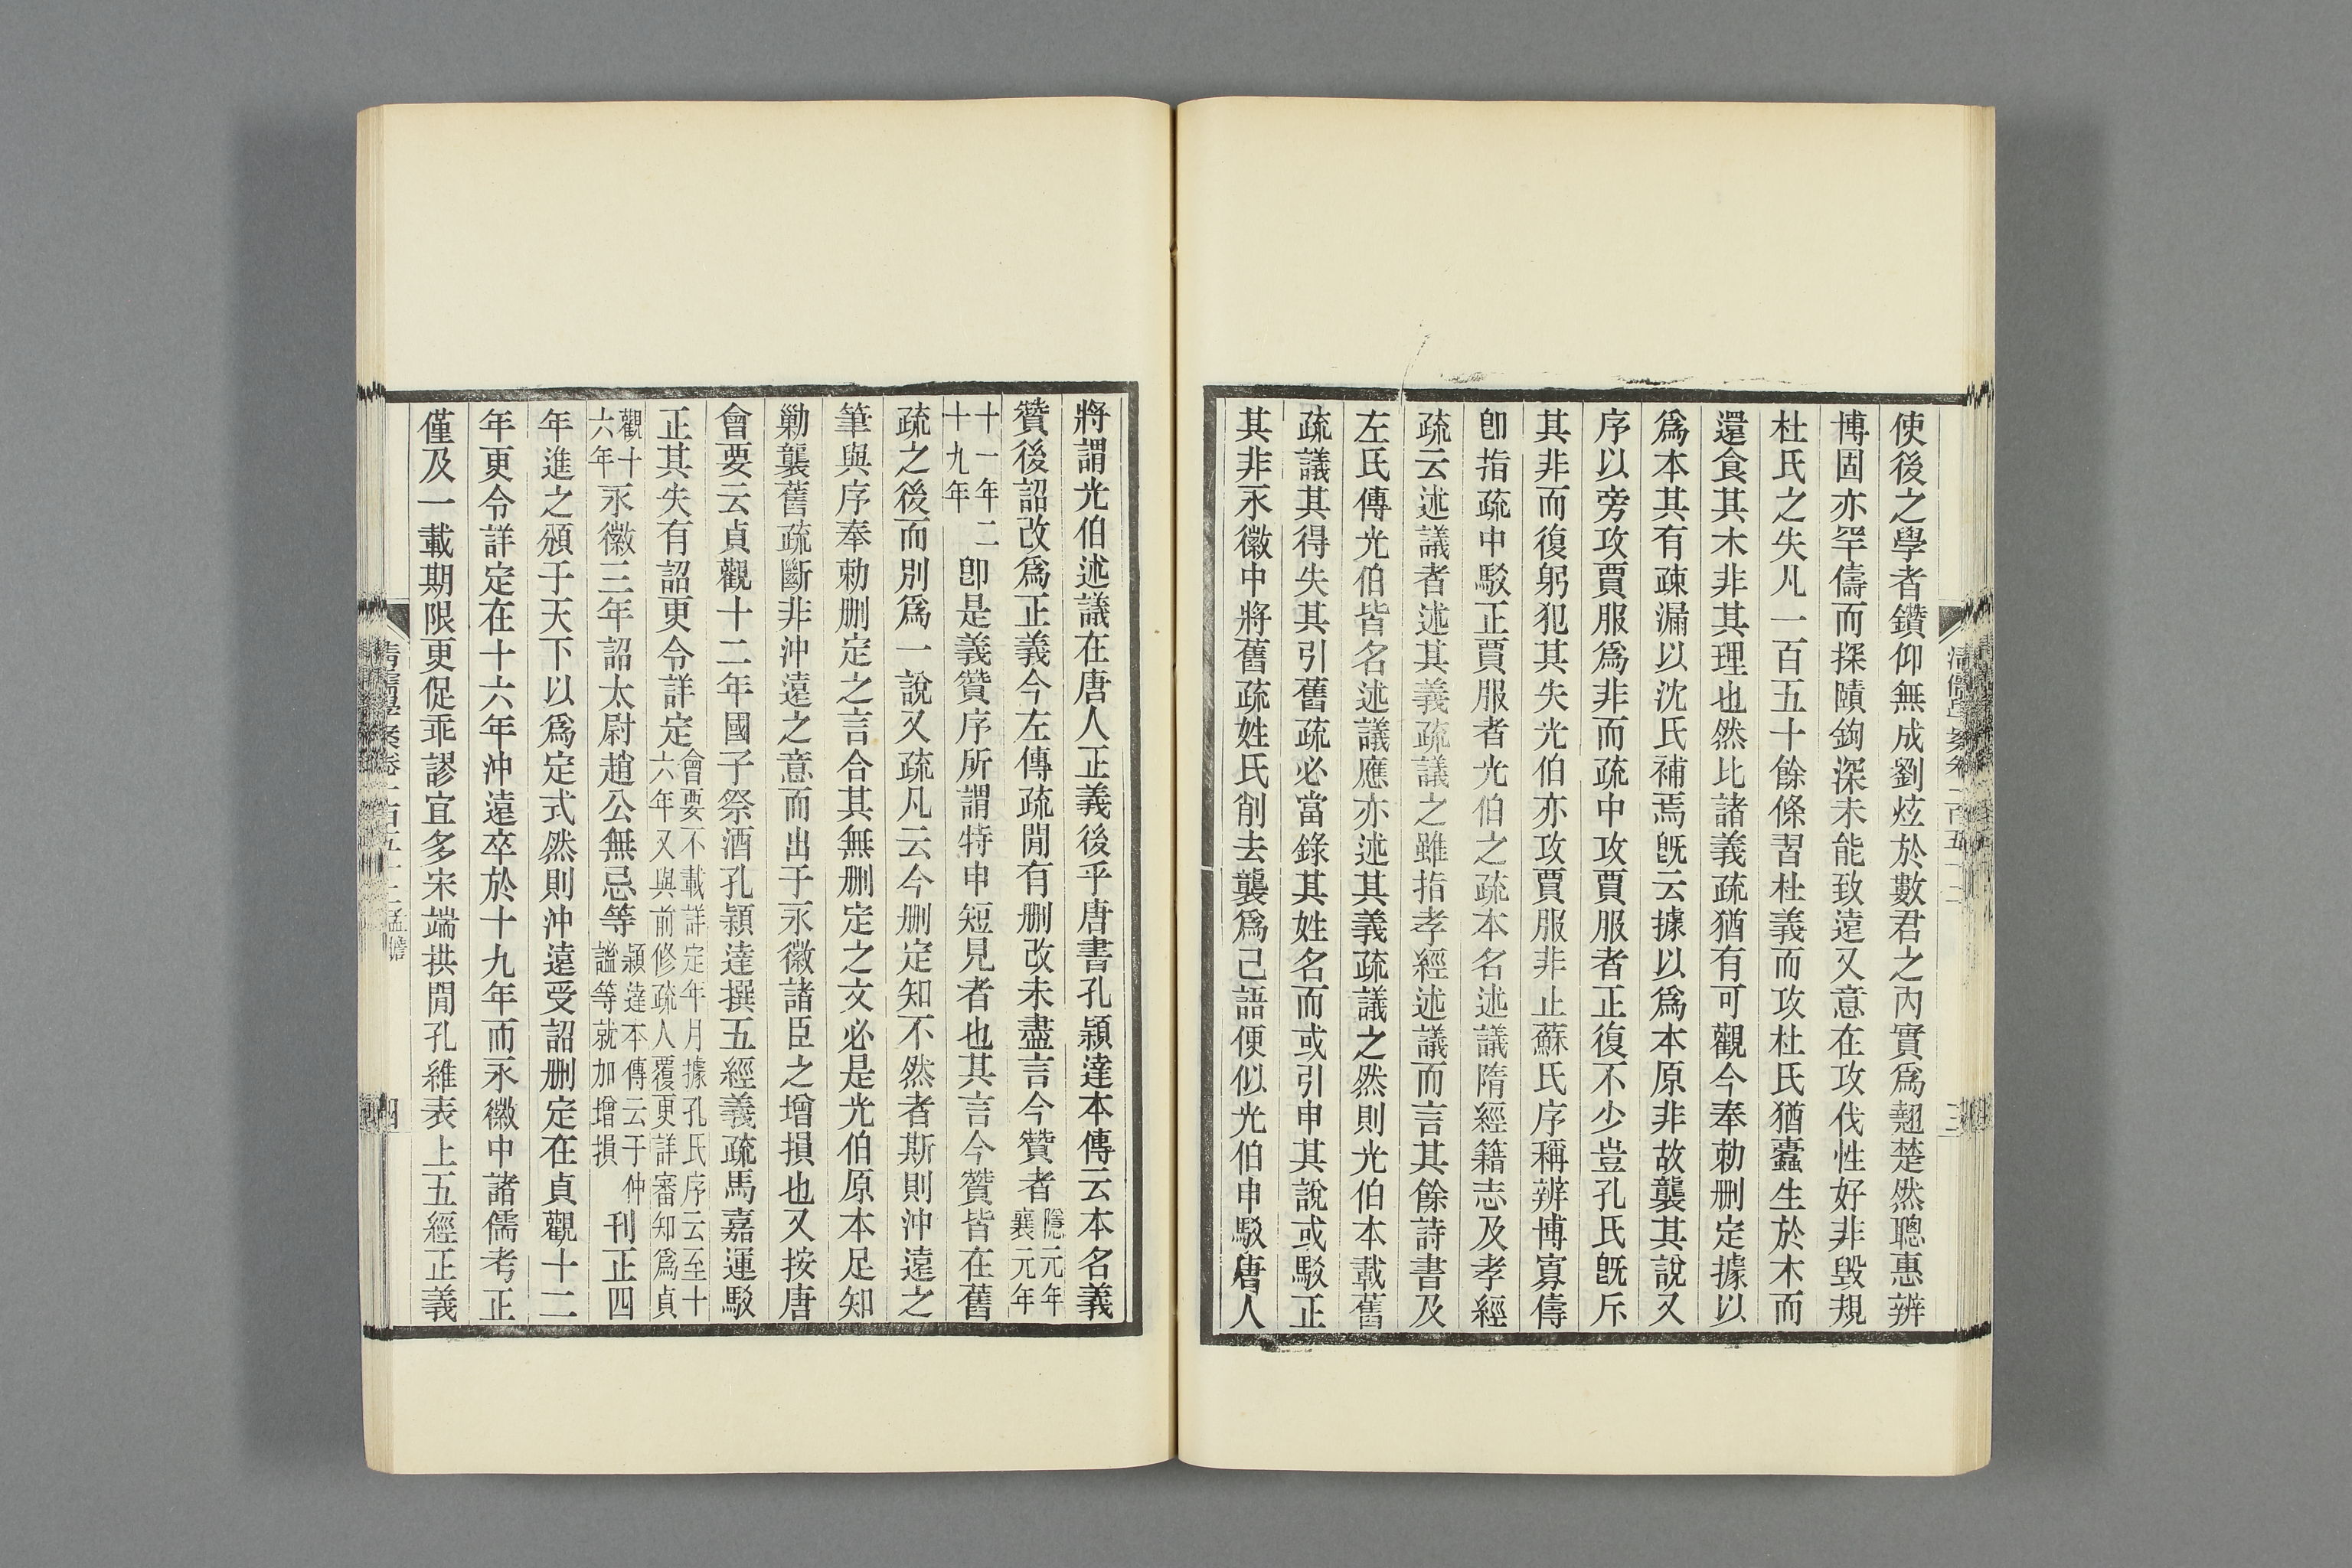 使後之學者鑽仰無成劉炫於數君之內實爲翹楚然聰惠辨
博固亦罕儔而探賾鉤深未能致遠又意在攻伐性好非毀規
杜氏之失凡一百五十餘條習杜義而攻杜氏猶蠹生於木而
還食其木非其理也然比諸義疏猶有可觀今奉勅刪定據以
爲本其有疎漏以沈氏補焉旣云據以爲本原非故襲其說又
序以旁攻賈服爲非而疏中攻賈服者正復不少豈孔氏旣斥
其非而復躬犯其失光伯亦攻賈服非止蘇氏序稱辨博寡儔
卽指疏中駁正賈服者光伯之疏本名述議隋經籍志及孝經
疏云述議者述其義疏議之雖指孝經述議而言其餘詩書及
左氏傳光伯皆名述議應亦述其義疏議之然則光伯本載舊
疏議其得失其引舊疏必當錄其姓名而或引申其說或駁正
其非永徽中將舊疏姓氏削去襲爲己語便似光伯申駁唐人
將謂光伯述議在唐人正義後乎唐書孔穎達本傳云本名義
贊後詔改爲正義今左傳疏閒有刪改未盡言今贊者隱元年襄元年
十一年二十九年卽是義贊序所謂特申短見者也其言今贊皆在舊
疏之後而別爲一說又疏凡云今刪定知不然者斯則沖遠之
筆與序奉勅刪定之言合其無刪定之文必是光伯原本足知
勦襲舊疏斷非沖遠之意而出于永徽諸臣之增損也又按唐
會要云貞觀十二年國子祭酒孔穎達撰五經義疏馬嘉運駁
正其失有詔更令詳定會要不載詳定年月據孔氏序云至十六年又與前修疏人覆更詳審知爲貞
觀十六年永徽三年詔太尉趙公無忌等穎達本傳云于仲謐等就加增損刊正四
年進之頒于天下以爲定式然則沖遠受詔刪定在貞觀十二
年更令詳定在十六年沖遠卒於十九年而永徽中諸儒考正
僅及一載期限更促乖謬宜多宋端拱閒孔維表上五經正義